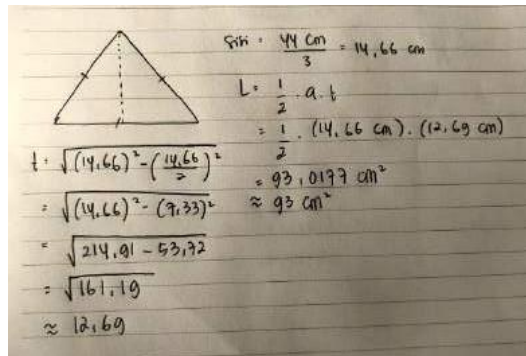 sisi = 44 cm / 3 = 14,66 cm
L = 1/2 . a . t
= 1/2 . (14,66 cm) . (12,69 cm)
= 93,0177 cm²
≈ 93 cm²
t = √(14,66)² - (14,66/2)²
= √(14,66)² - (7,33)²
= √214,91 - 53,72
= √161,19
≈ 12,69